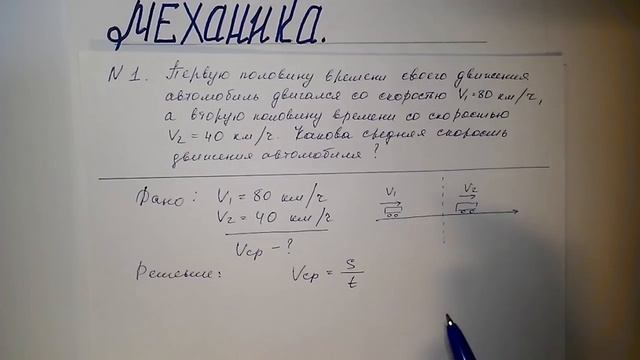 МЕХАНИКА.
N 1. Первую половину времени своего движения
автомобиль двигался со скоростью V₁=80 км/ч,
а вторую половину времени со скоростью
V₂ = 40 км/ч. Какова средняя скорость
движения автомобиля?
Дано: V₁ = 80 км/ч
V₂ = 40 км/ч
V₁ V₂
Vср - ?
Решение: Vср = S/t